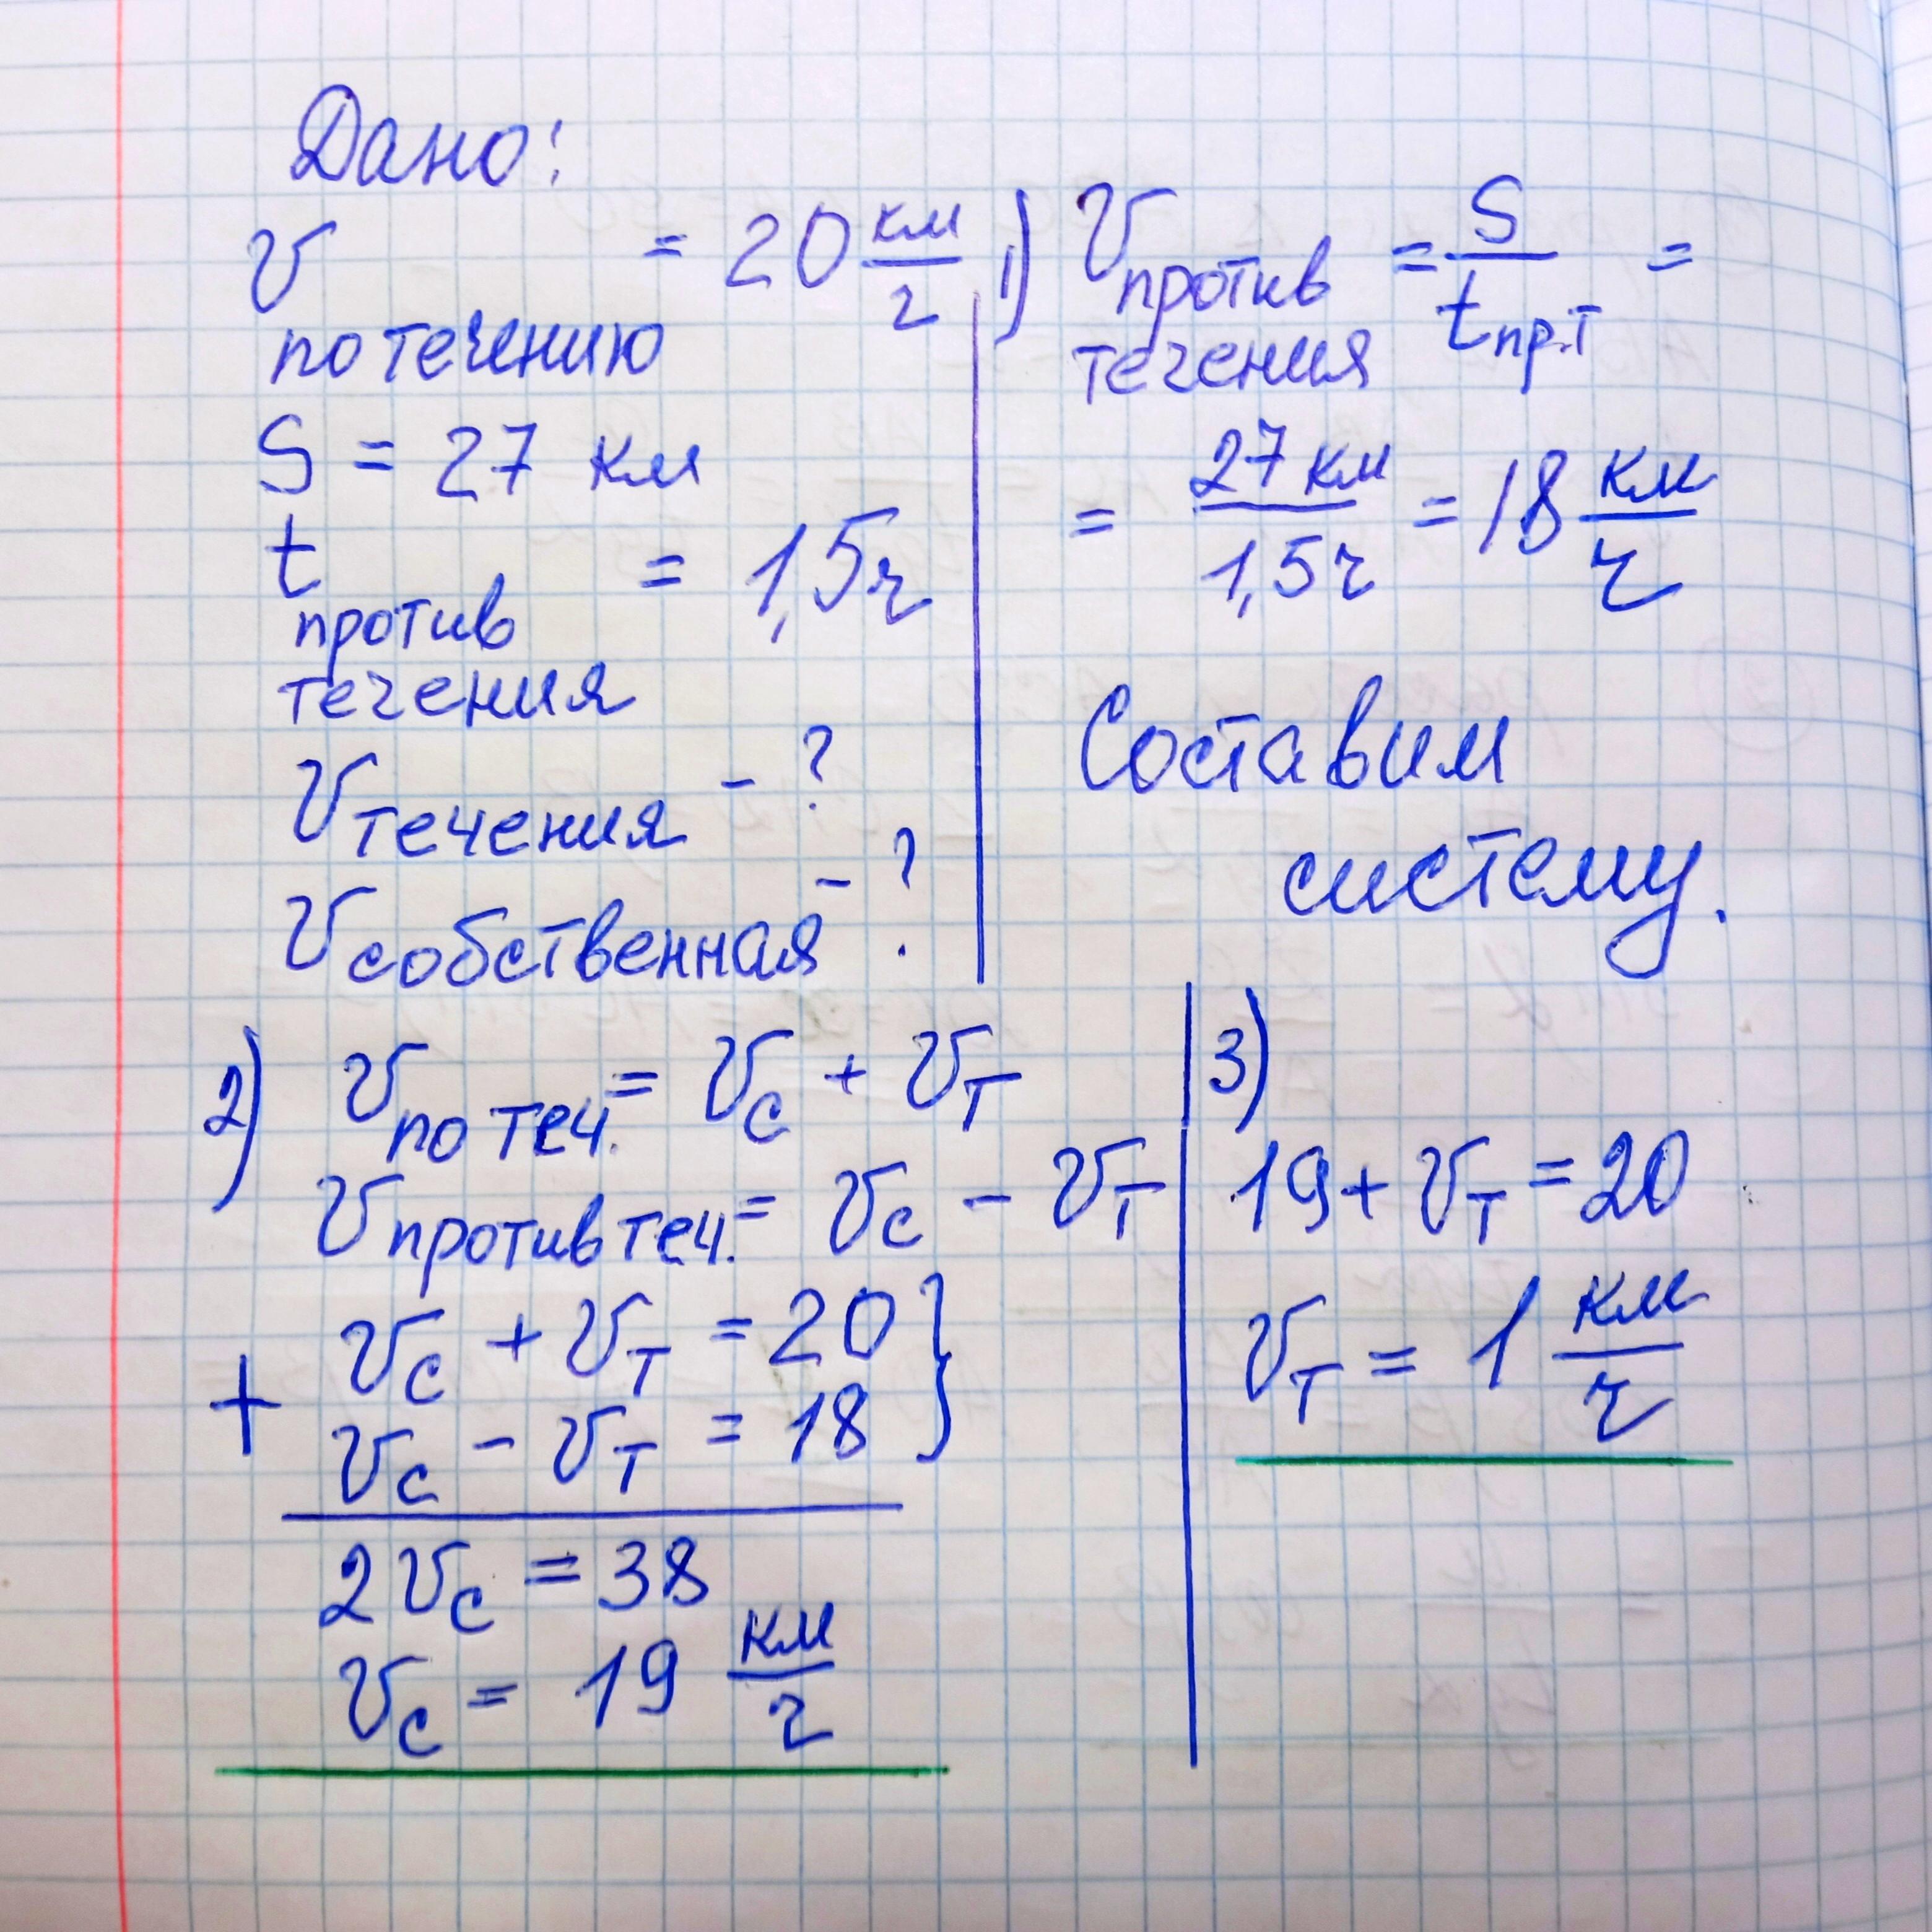 Дано:
v по течению = 20 км/ч
S = 27 км
t против течения = 1,5 ч
v течения - ?
v собственная - ?
1) v против течения = S / t пр.т =
= 27 км / 1,5 ч = 18 км/ч
Составим
систему.
2) v по теч. = v с + v т
v против теч. = v с - v т
v с + v т = 20 }
+
v с - v т = 18
2 v с = 38
v с = 19 км/ч
3)
19 + v т = 20
v т = 1 км/ч